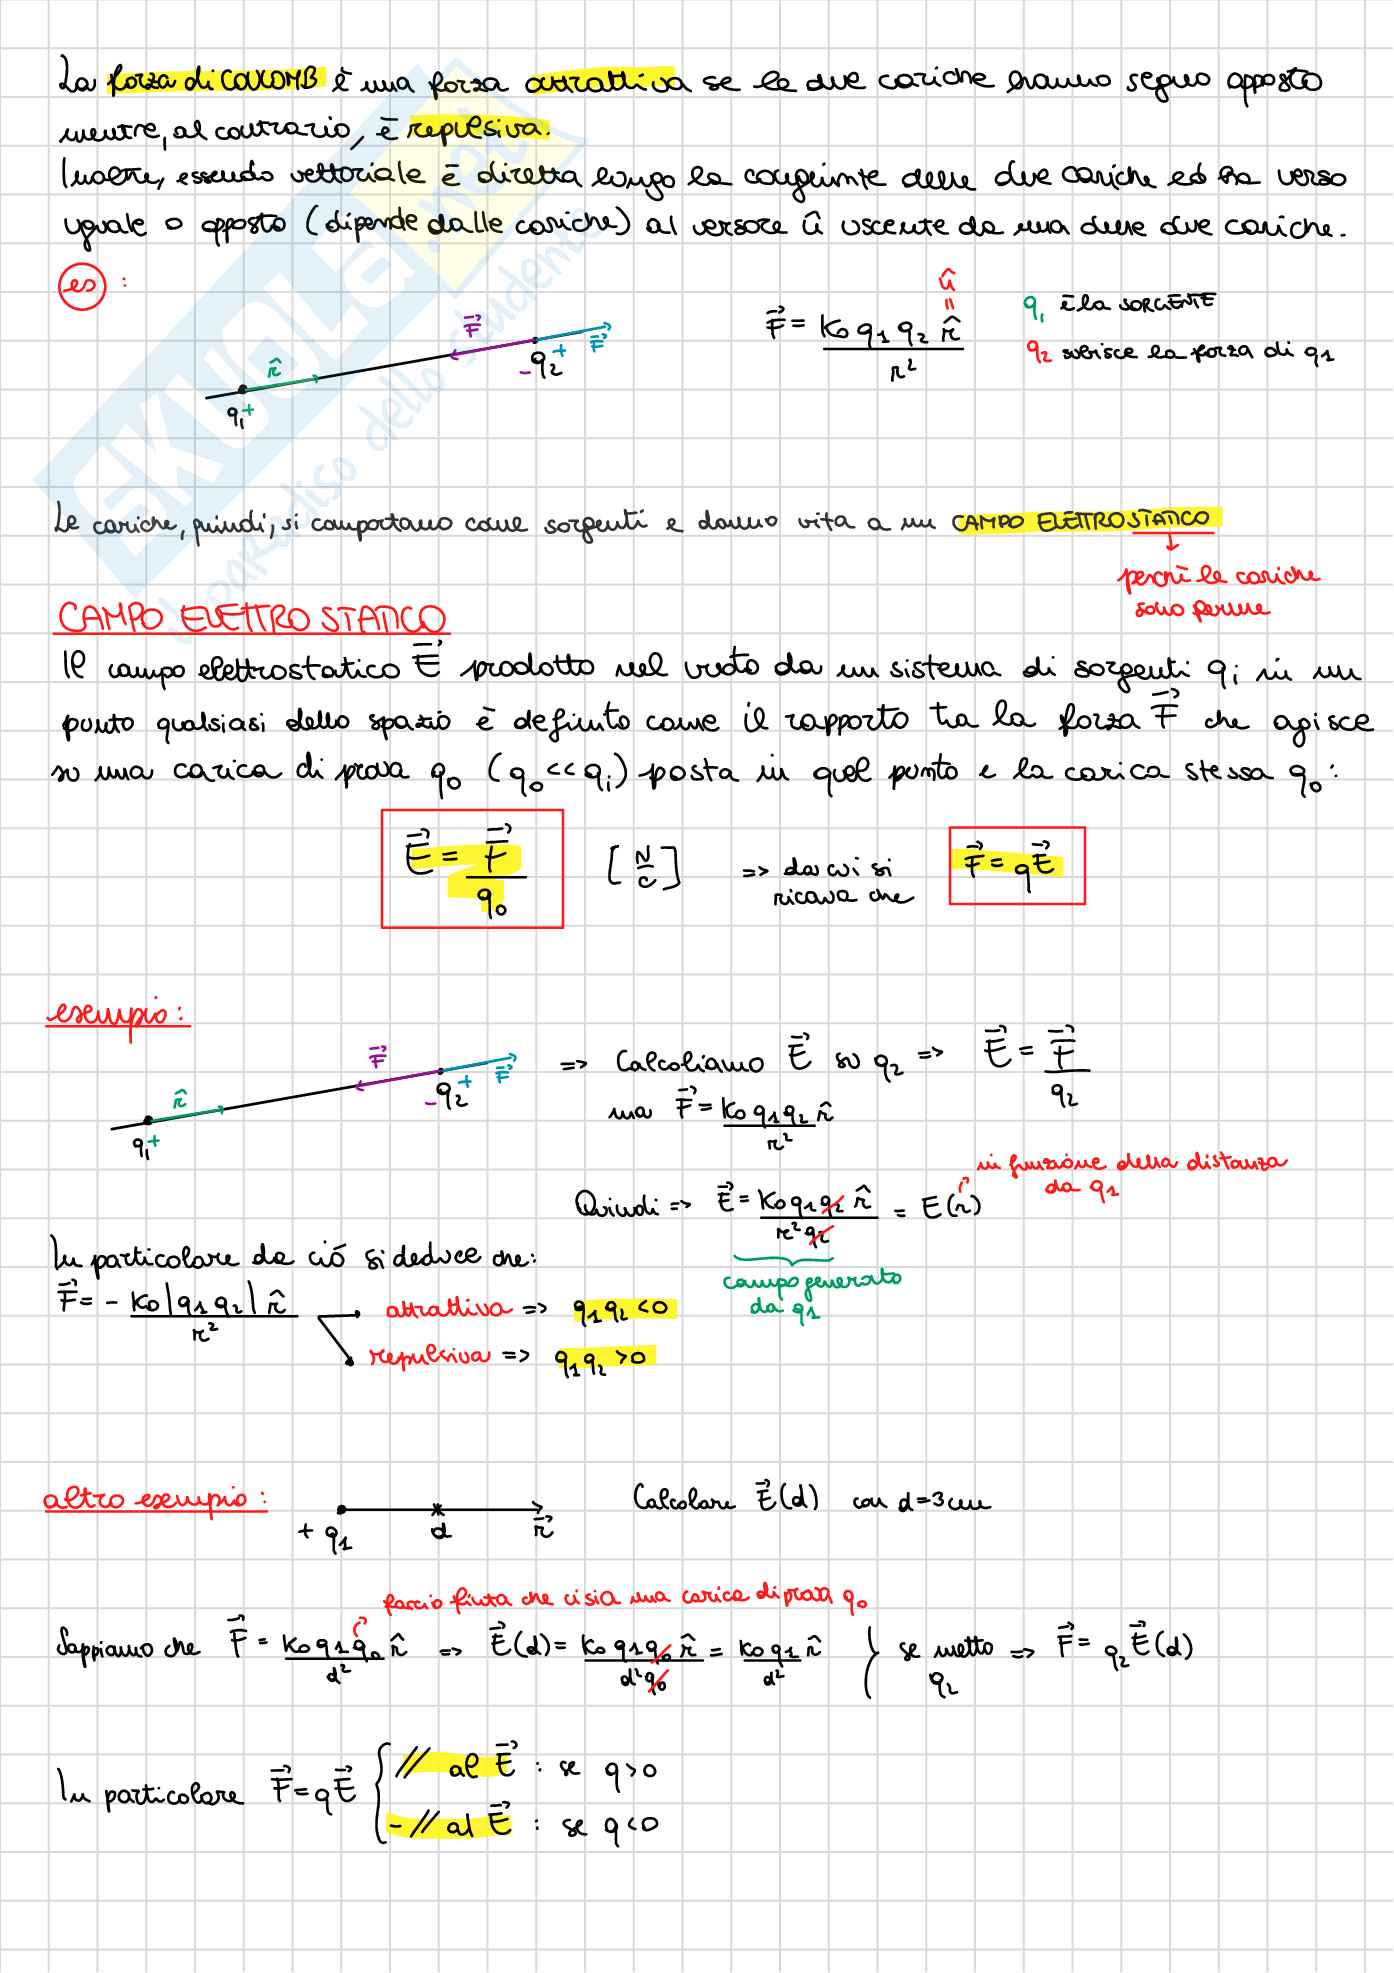 La forza di COULOMB è una forza attrattiva se le due cariche hanno segno opposto
mentre, al contrario, è repulsiva.
Inoltre, essendo vettoriale è diretta lungo la congiunte delle due cariche ed ha verso
uguale o opposto (dipende dalle cariche) al versore û uscente da una delle due cariche.
es :
r̂ q₁ + F⃗ - q₂ + F⃗
F⃗ = K₀ q₁ q₂ r̂ / r² û =
q₁ è la SORGENTE
q₂ subisce la forza di q₁
Le cariche, quindi, si comportano come sorgenti e danno vita a un CAMPO ELETTROSTATICO
perchè le cariche
sono ferme
CAMPO ELETTROSTATICO
Il campo elettrostatico E⃗ prodotto nel vuoto da un sistema di sorgenti qᵢ in un
punto qualsiasi dello spazio è definito come il rapporto tra la forza F⃗ che agisce
su una carica di prova q₀ (q₀ << qᵢ) posta in quel punto e la carica stessa q₀:
E⃗ = F⃗ / q₀ [N/C] => da cui si ricava che F⃗ = qE⃗
esempio:
r̂ q₁ + F⃗ - q₂ + F⃗
=> Calcoliamo E⃗ su q₂ => E⃗ = F⃗ / q₂
ma F⃗ = K₀ q₁ q₂ r̂ / r²
in funzione della distanza
da q₁
Quindi => E⃗ = K₀ q₁ q₂ r̂ / r² q₂ = E(r)
campo generato
da q₁
In particolare da ciò si deduce che:
F⃗ = - K₀ |q₁ q₂| r̂ / r²
attrattiva => q₁ q₂ < 0
repulsiva => q₁ q₂ > 0
altro esempio :
+ q₁ d r⃗
Calcolare E⃗(d) con d = 3cm
faccio finta che ci sia una carica di prova q₀
Sappiamo che F⃗ = K₀ q₁ q₀ r̂ / d² => E⃗(d) = K₀ q₁ q₀ r̂ / d² q₀ = K₀ q₁ r̂ / d² } se metto q₂ => F⃗ = q₂ E⃗(d)
In particolare F⃗ = qE⃗ { // al E⃗ : se q > 0
- // al E⃗ : se q < 0
SKUOLA.net
il paradiso dello studente